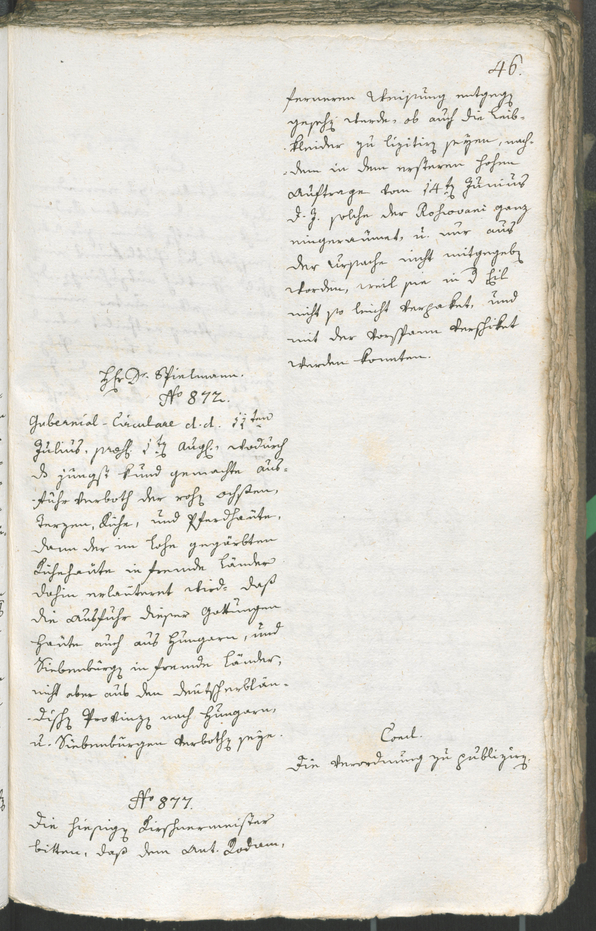 46.
ferneren Weisung entgegen
gesehen werde, ob auch die Leib-
kleider zu liziti(e)ren seyen, nach-
dem in dem ersteren hohen
Auftrage vom 14ten Junius
d. J. solche der Rohovani ganz
eingeraümet, u. nur aus
der Ursache nicht mitgegeben
worden, weil sie in d Eil
nicht so leicht verpaket, und
mit der Vorspann verschiket
werden konnten.
Hr Dr. Spielmann.
No 872.
Gubernial-Circulare d. d. 11ten
Julius, 1ten Aug., wodurch
d jüngst kund gemachte Aus-
fuhr Verboth der rohen Ochsen,
Terzen, Kühe, und Pferdhäute,
dann der im Lohe gegärbten
Kühehäute in fremde Länder
dahin erläuteret wird, daß
die Ausfuhr dieser Gattungen
Häute auch aus Hungarn, und
Siebenbürgen in fremde Länder,
nicht aber aus den deutscherblän-
dischen Provinzen nach Hungarn,
u. Siebenbürgen verbothen seye.
Concl.
Die Verordnung zu publiziren.
No 877.
Die hiesigen Kirschnermeister
bitten, daß dem Ant. Kodam,